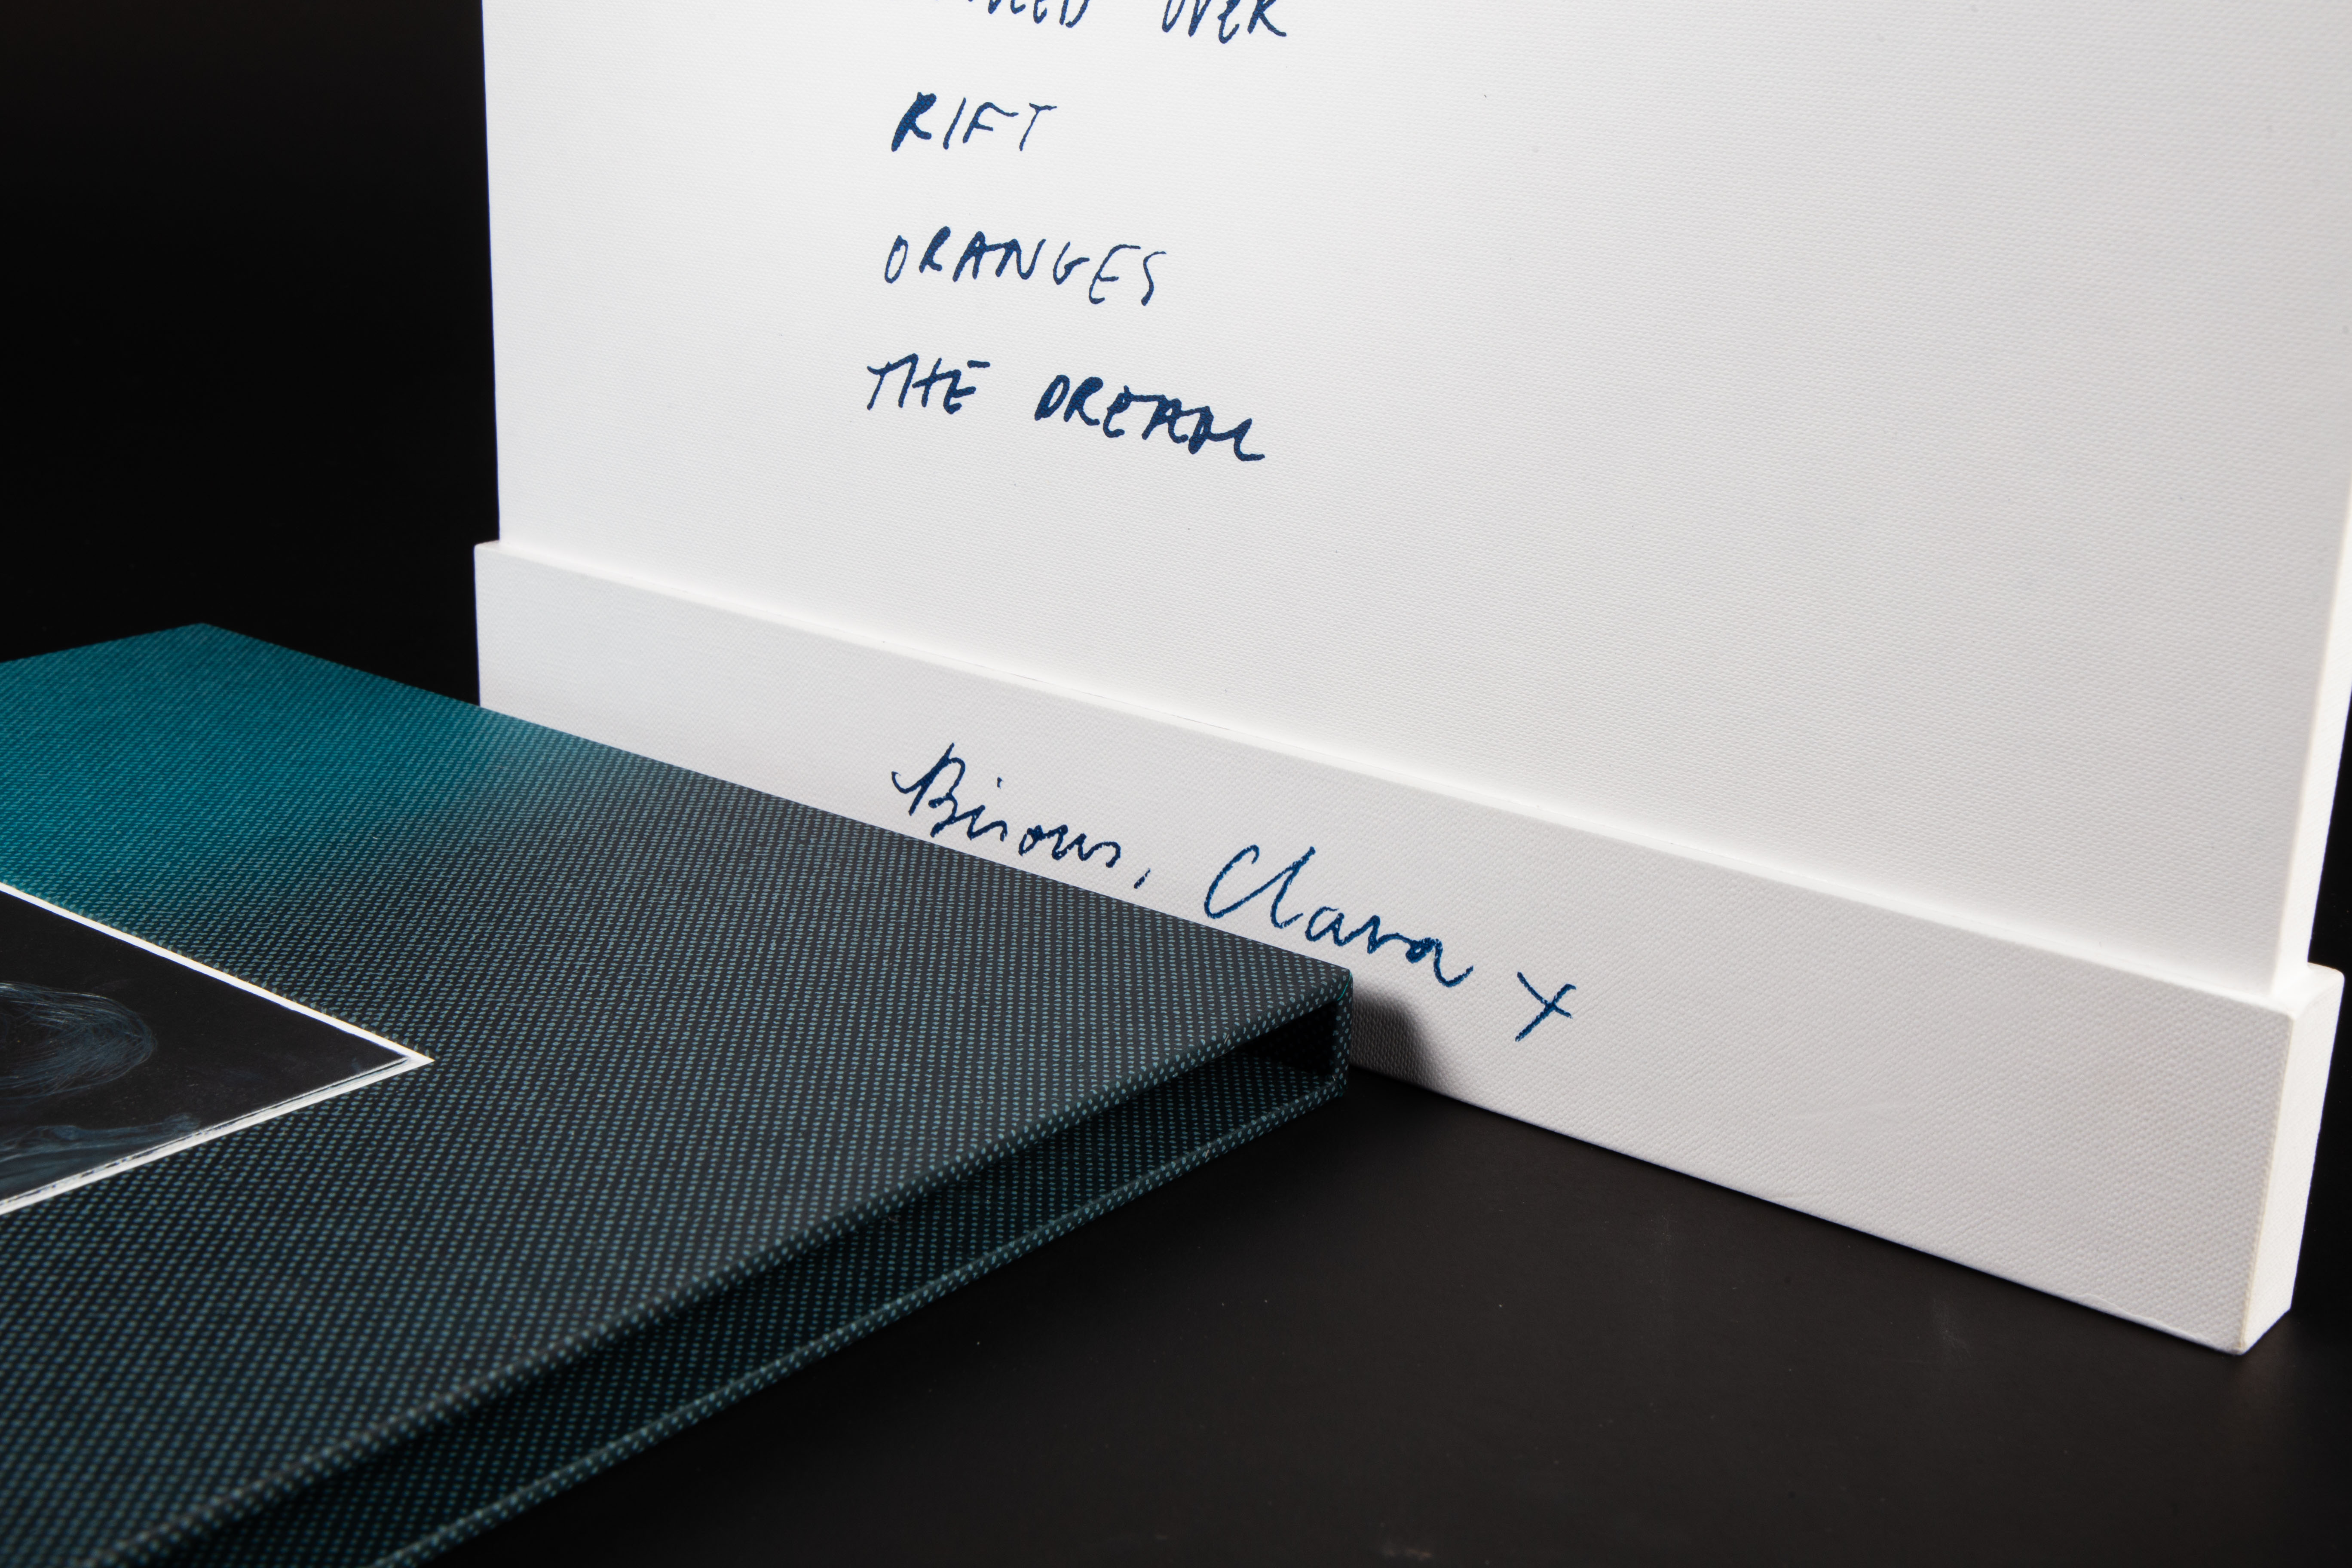 OVER
RIFT
ORANGES
THE DREAM
Bisous, Clara x